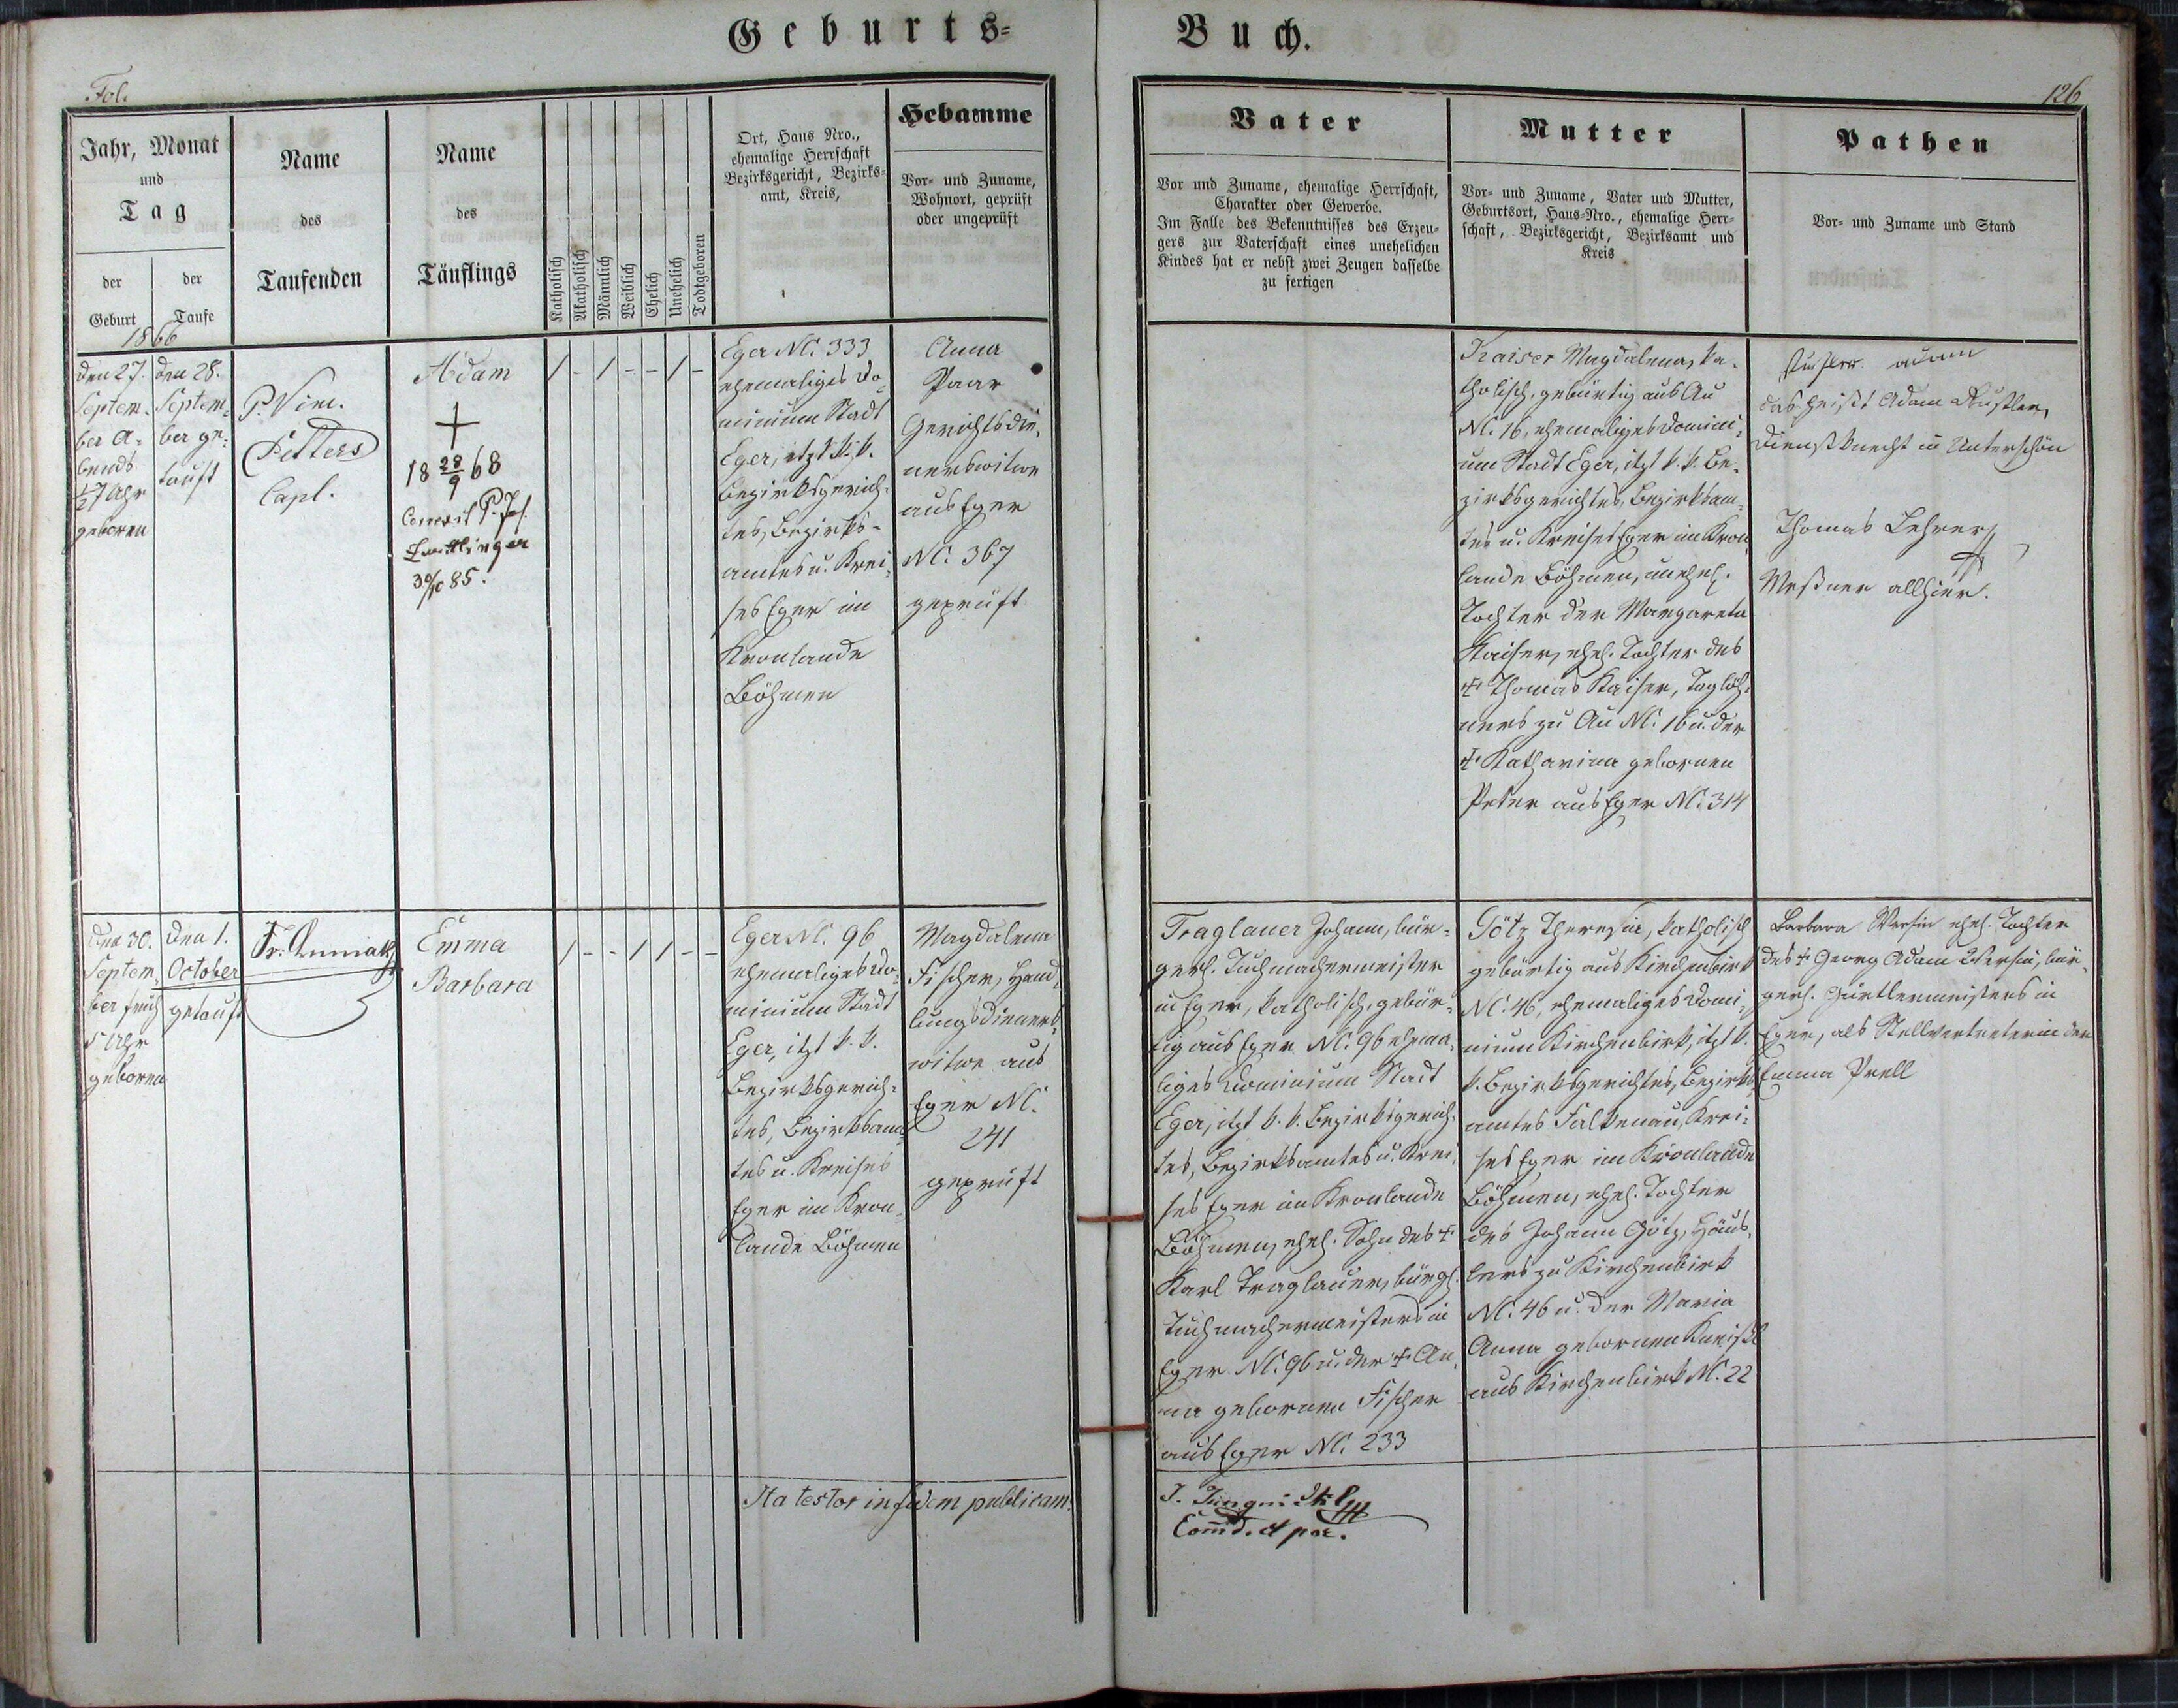 Geburts=
Buch.
Fol.
126
Jahr, Monat
und
Tag
der
Geburt
der
Taufe
Name
des
Taufenden
Name
des
Täuflings
Katholisch
Akatholisch
Männlich
Weiblich
Ehelich
Unehelich
Todtgeboren
Ort, Haus Nro.,
ehemalige Herrschaft
Bezirksgericht, Bezirks-
amt, Kreis,
Hebamme
Vor- und Zuname,
Wohnort, geprüft
oder ungeprüft
Vater
Vor und Zuname, ehemalige Herrschaft,
Charakter oder Gewerbe.
Im Falle des Bekenntnisses des Erzeu-
gers zur Vaterschaft eines unehelichen
Kindes hat er nebst zwei Zeugen dasselbe
zu fertigen
Mutter
Vor- und Zuname, Vater und Mutter,
Geburtsort, Haus-Nro., ehemalige Herr-
schaft, Bezirksgericht, Bezirksamt und
Kreis
Pathen
Vor- und Zuname und Stand
1866
den 27.
Septem-
ber A-
bends
½7 Uhr
geboren
den 28.
Septem-
ber ge-
tauft
P. Vinc.
Pitters
Capl.
Adam
+
18 28/9 68
Correxit P. Jos.
3%85.
/ - / - - / -
Eger NC. 333
ehemaliges Do-
minium Stadt
Eger, itzt k. k.
Bezirksgerich-
tes, Bezirks-
amtes u. Krei-
ses Eger im
Kronlande
Böhmen
Anna
Paar
Gerichtsdie-
nerswitwe
aus Eger
NC. 367
geprüft
Kaiser Magdalena, ka-
tholisch, gebürtig aus Au
NC. 16, ehemaliges Domini-
um Stadt Eger, itzt k. k. Be-
zirksgerichtes, Bezirksam-
tes u. Kreises Eger im Kron-
lande Böhmen, unehel.
Tochter der Margareta
Kaiser, ehel. Tochter des
+ Thomas Kaiser, Taglöh-
ners zu Au NC. 16 u. der
+ Katharina gebornen
Peter aus Eger NC. 314
Adam
das heißt Adam Rustler,
Dienstknecht in Unterschön
Thomas Lehrer
Meßner allhier.
Den 30.
Septem-
ber früh
5 Uhr
geboren
Den 1.
October
getauft
Fr.
Emma
Barbara
/ - - / / - -
Eger NC. 96
ehemaliges Do-
minium Stadt
Eger, itzt k. k.
Bezirksgerich-
tes, Bezirksam-
tes u. Kreises
Eger im Kron-
lande Böhmen
Magdalena
Fischer, Hand-
lungsdieners-
witwe aus
Eger NC.
241
geprüft
Traglauer Johann, bür-
gerl. Tuchmachermeister
in Eger, katholisch, gebür-
tig aus Eger NC. 96 ehema-
liges Dominium Stadt
Eger, itzt k. k. Bezirksgerich-
tes, Bezirksamtes u. Krei-
ses Eger im Kronlande
Böhmen, ehel. Sohn des +
Karl Traglauer, bürgl.
Tuchmachermeisters in
Eger NC. 96 u. der + An-
na gebornen Fischer
aus Eger NC. 233
Götz Theresia, katholisch
gebürtig aus Kirchenbirk
NC. 46, ehemaliges Domi-
nium Kirchenbirk, itzt k.
k. Bezirksgerichtes, Bezirks-
amtes Falkenau, Krei-
ses Eger im Kronlande
Böhmen, ehel. Tochter
des Johann Götz, Häus-
lers zu Kirchenbirk
NC. 46 u. der Maria
Anna gebornen Kneißl
aus Kirchenbirk NC. 22
Barbara Wersin ehel. Tochter
des + Georg Adam Wersin, bür-
gerl. Gürtlermeisters in
Eger, als Stellvertreterin der
Emma Prell
Ita testor in fidem publicam.
J. Jüngni
Comd. et par.